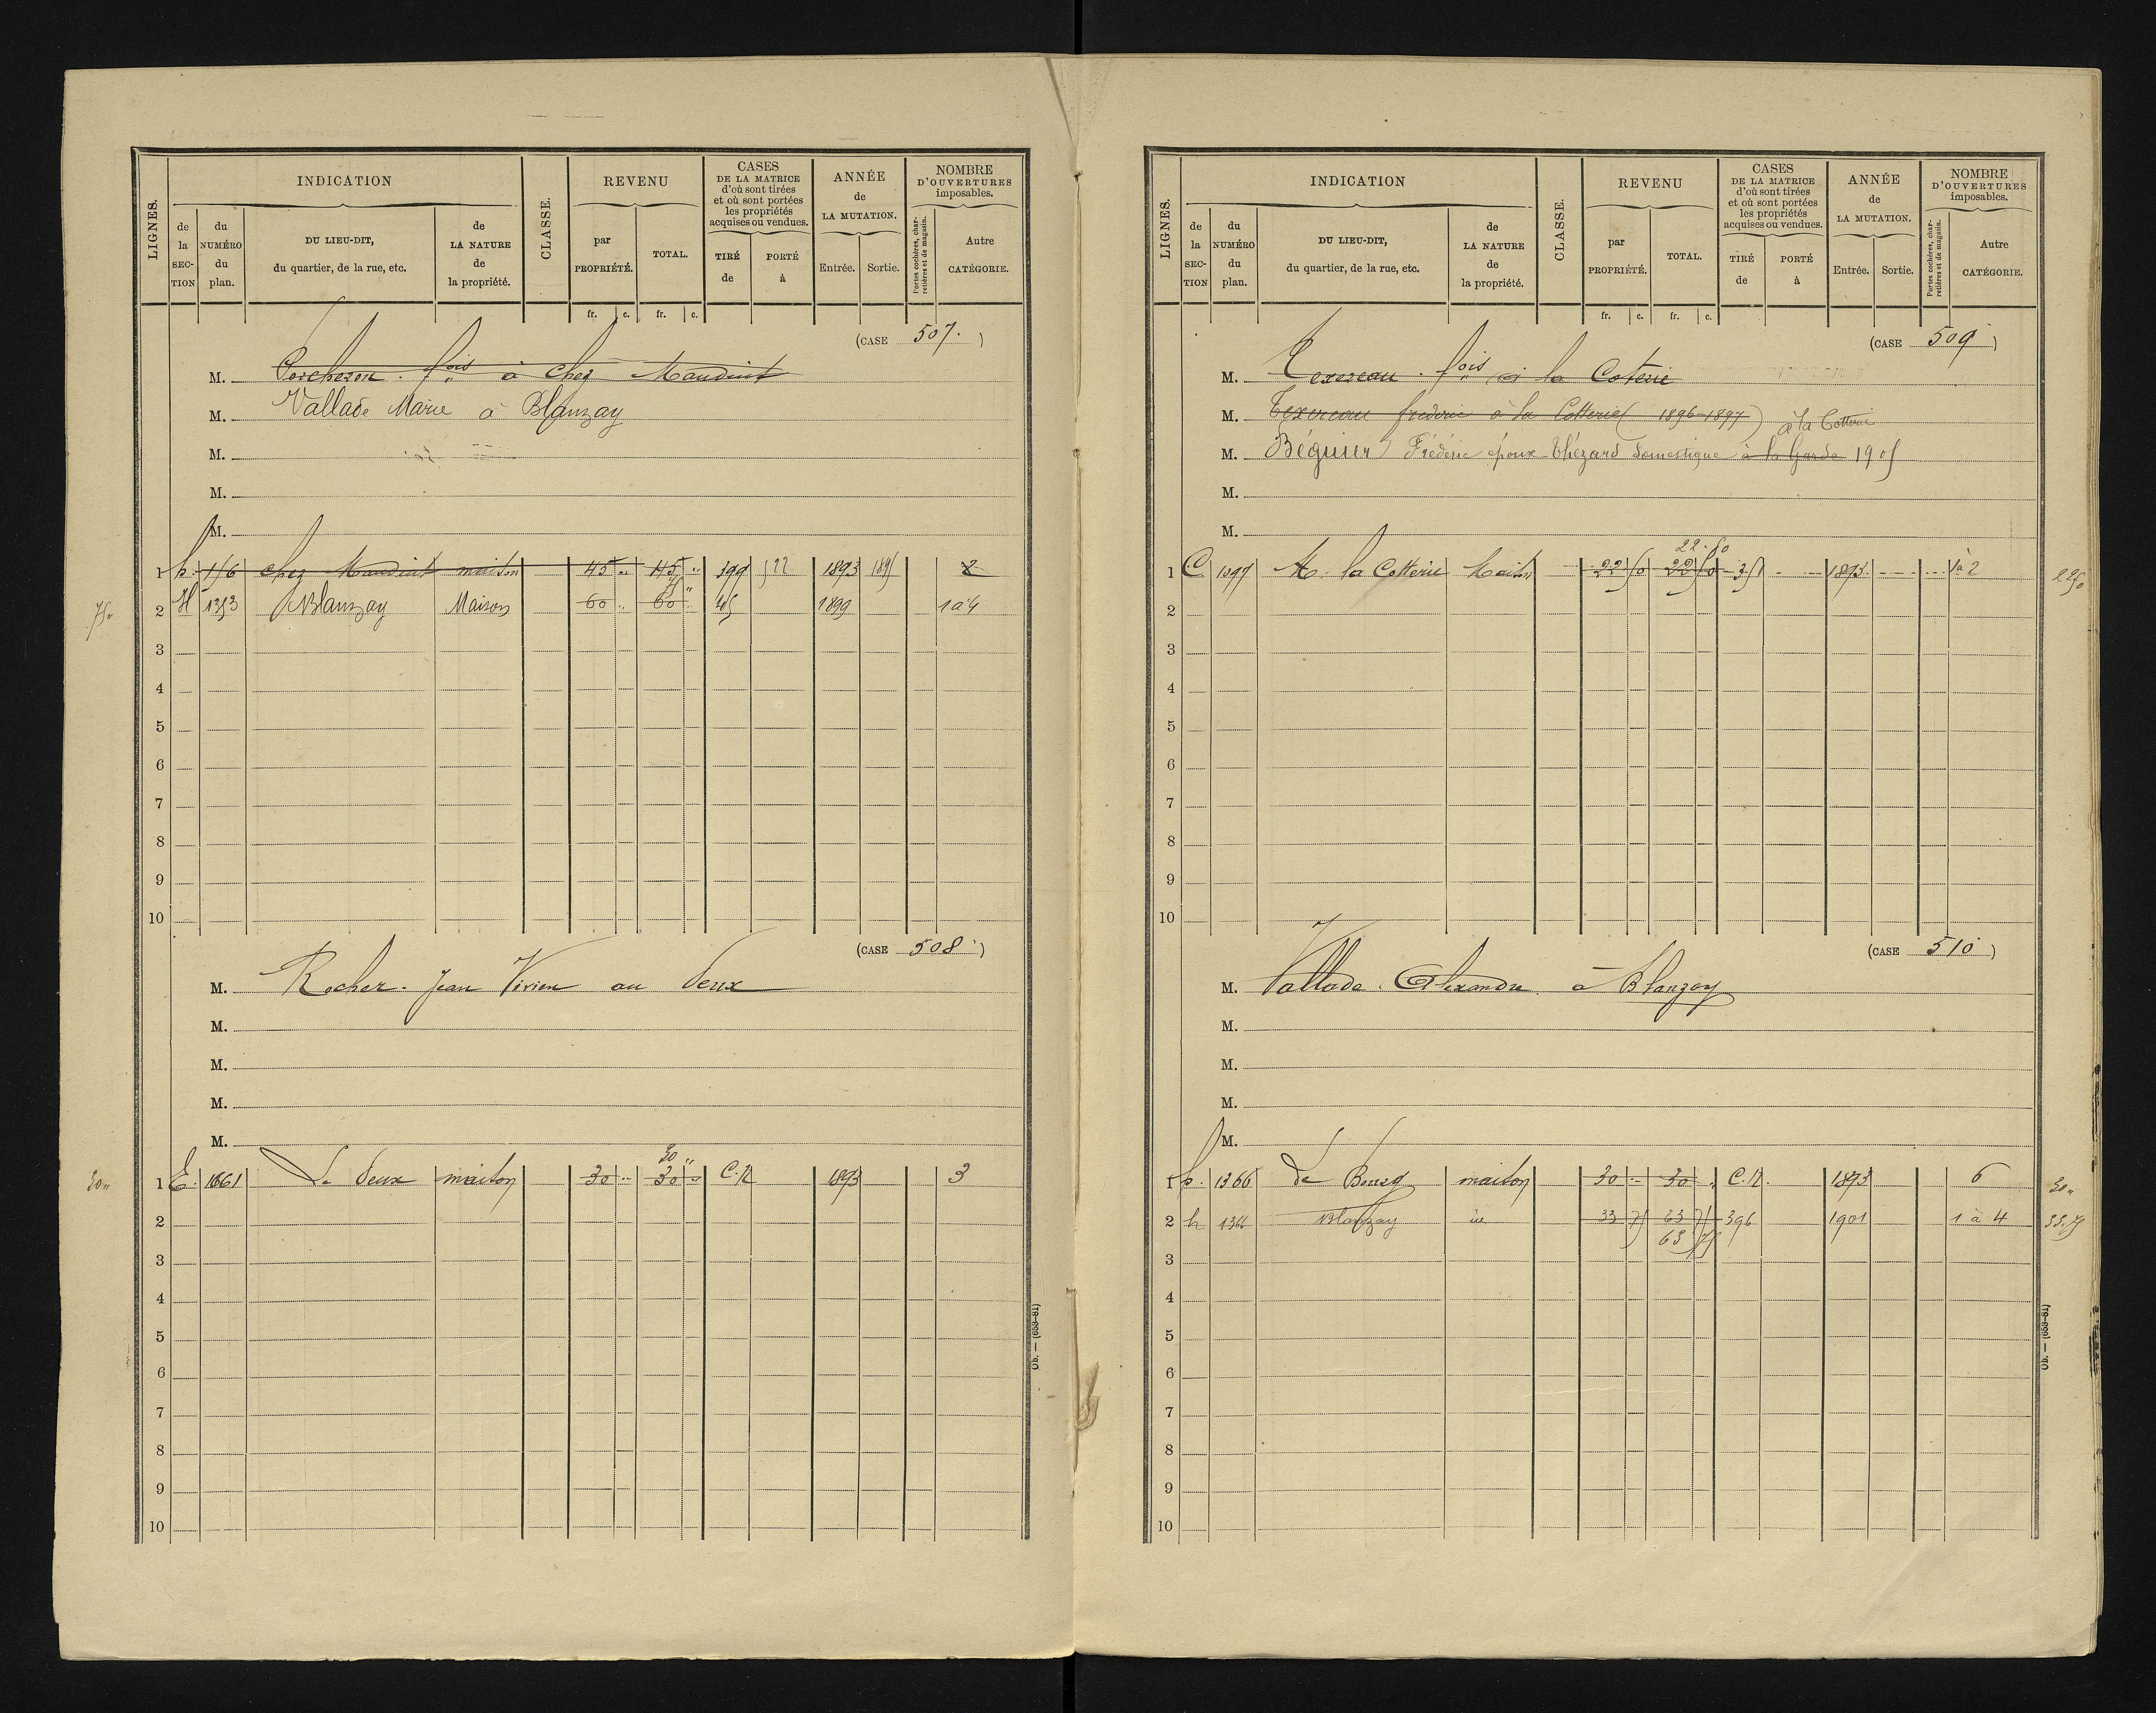 LIGNES.
INDICATION
de la SECTION
du NUMÉRO du plan.
DU LIEU-DIT, du quartier, de la rue, etc.
de LA NATURE de la propriété.
CLASSE.
REVENU
par PROPRIÉTÉ.
TOTAL.
CASES DE LA MATRICE d'où sont tirées et où sont portées les propriétés acquises ou vendues.
TIRÉ de
PORTÉ à
ANNÉE de LA MUTATION.
Entrée.
Sortie.
NOMBRE D'OUVERTURES imposables.
Portes cochères, charretières et de magasin.
Autre CATÉGORIE.
fr. c. fr. c.
(CASE 507.)
M. Porcheron fois à Chez Maudint
M. Vallade Marie à Blanzay
M.
M.
M.
1 h. 116 chez Maudint maison 45 " 45 " 399 522 1893 1895 2
75 "
75 " 2 H 1353 Blanzay Maison 60 " 60 " 1899 1 à 4
3
4
5
6
7
8
9
10
(CASE 508.)
M. Rocher Jean Vivien au Peux
M.
M.
M.
M.
30 "
30 " 1 E. 1661 Le Peux maison 30 " 30 " C.N 1893 3
2
3
4
5
6
7
8
9
10
Ob. — (653-81)
LIGNES.
INDICATION
de la SECTION
du NUMÉRO du plan.
DU LIEU-DIT, du quartier, de la rue, etc.
de LA NATURE de la propriété.
CLASSE.
REVENU
par PROPRIÉTÉ.
TOTAL.
CASES DE LA MATRICE d'où sont tirées et où sont portées les propriétés acquises ou vendues.
TIRÉ de
PORTÉ à
ANNÉE de LA MUTATION.
Entrée.
Sortie.
NOMBRE D'OUVERTURES imposables.
Portes cochères, charretières et de magasin.
Autre CATÉGORIE.
fr. c. fr. c.
(CASE 509)
M. Texereau fois à la Coterie
M. Texereau frederic à la Cotterie (1896-1897) à la Cotterie
M. Béguier Frédéric époux Thézard domestique à la Garde 1905
M.
M.
22.50
1 C. 1097 la Cotterie Maison 22 50 22 50 351 1893 1 à 2 22 50
2
3
4
5
6
7
8
9
10
(CASE 510)
M. Vallade Alexandre à Blanzay
M.
M.
M.
M.
1 h. 1366 Le Bourg maison 30 " 30 " C.N. 1893 6 30 "
2 h 1366 Blanzay id 33 75 63 75 396 1901 1 à 4 33.75
63 75
3
4
5
6
7
8
9
10
Ob. — (653-81)